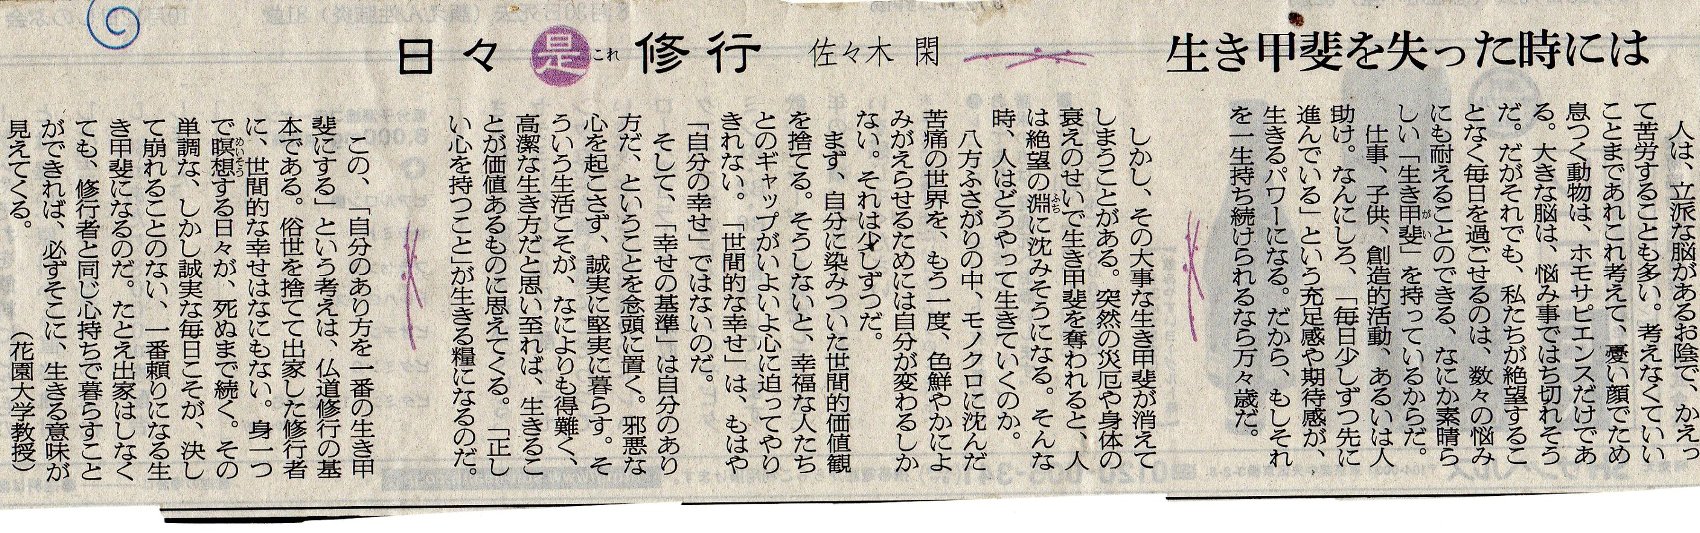 生き甲斐を失った時には
日々是修行 佐々木 閑
これ
人は、立派な脳があるお陰で、かえっ
て苦労することも多い。考えなくていい
ことまであれこれ考えて、憂い顔でため
息つく動物は、ホモサピエンスだけであ
る。大きな脳は、悩み事ではち切れそう
だ。だがそれでも、私たちが絶望するこ
となく毎日を過ごせるのは、数々の悩み
にも耐えることのできる、なにか素晴ら
しい「生き甲斐」を持っているからだ。
がい
仕事、子供、創造的活動、あるいは人
助け。なんにしろ、「毎日少しずつ先に
進んでいる」という充足感や期待感が、
生きるパワーになる。だから、もしそれ
を一生持ち続けられるなら万々歳だ。
しかし、その大事な生き甲斐が消えて
しまうことがある。突然の災厄や身体の
衰えのせいで生き甲斐を奪われると、人
は絶望の淵に沈みそうになる。そんな
ふち
時、人はどうやって生きていくのか。
八方ふさがりの中、モノクロに沈んだ
苦痛の世界を、もう一度、色鮮やかによ
みがえらせるためには自分が変わるしか
ない。それは少しずつだ。
まず、自分に染みついた世間的価値観
を捨てる。そうしないと、幸福な人たち
とのギャップがいよいよ心に迫ってやり
きれない。「世間的な幸せ」は、もはや
「自分の幸せ」ではないのだ。
そして、「幸せの基準」は自分のあり
方だ、ということを念頭に置く。邪悪な
心を起こさず、誠実に堅実に暮らす。そ
ういう生活こそが、なによりも得難く、
高潔な生き方だと思い至れば、生きるこ
とが価値あるものに思えてくる。「正し
い心を持つこと」が生きる糧になるのだ。
この、「自分のあり方を一番の生き甲
斐にする」という考えは、仏道修行の基
本である。俗世を捨てて出家した修行者
に、世間的な幸せはなにもない。身一つ
で瞑想する日々が、死ぬまで続く。その
めいそう
単調な、しかし誠実な毎日こそが、決し
て崩れることのない、一番頼りになる生
き甲斐になるのだ。たとえ出家はしなく
ても、修行者と同じ心持ちで暮らすこと
ができれば、必ずそこに、生きる意味が
見えてくる。
（花園大学教授）